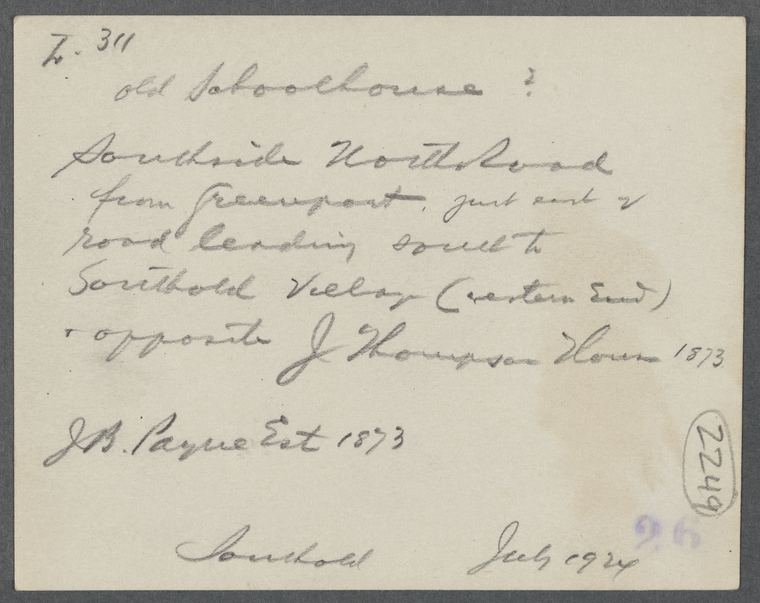 L. 311
old Schoolhouse ?
Southside North Road
from Greenport, just east of
road leading south to
Southold Village (western End)
+ opposite J Thompson House 1873
J B. Payne Est 1873
2249
Southold July 1924